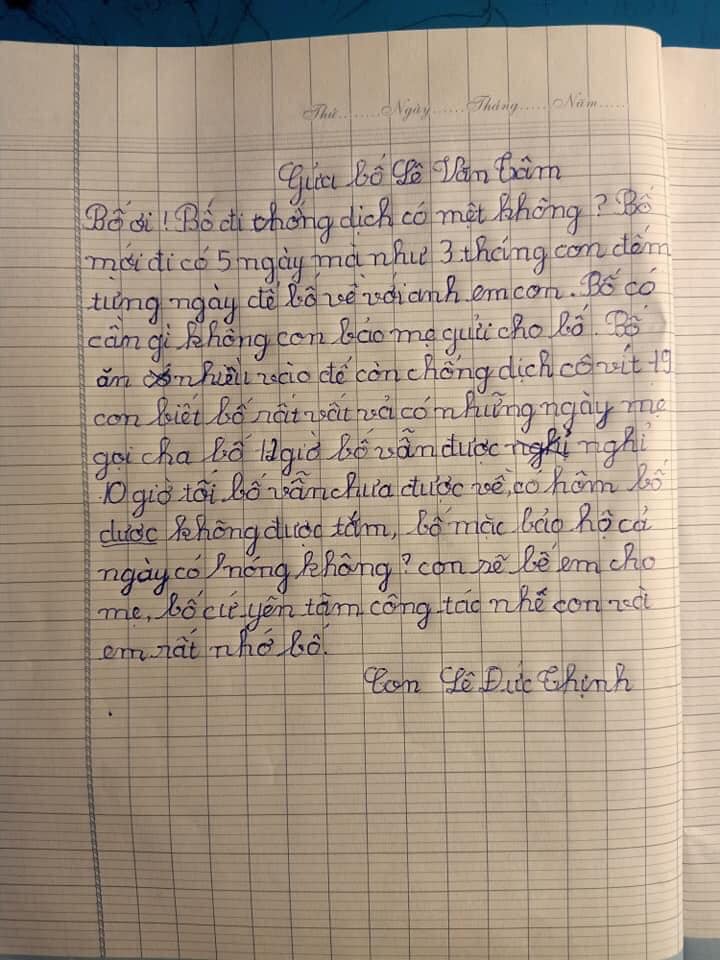 Thứ........Ngày......Tháng......Năm......
Gửa bố Lê Văn Tâm
Bố ơi! Bố đi chống dịch có mệt không? Bố
mới đi có 5 ngày mà như 3 tháng con đếm
từng ngày để bố về với anh em con. Bố có
cần gì không con bảo mẹ gửi cho bố. Bố
ăn nhiều vào để còn chống dịch cô vít 19
con biết bố rất vất vả có những ngày mẹ
gọi cha bố 12 giờ bố vẫn được nghỉ nghỉ
10 giờ tối bố vẫn chưa được về, có hôm bố
được không được tắm, bố mặc bảo hộ cả
ngày có nóng không? con sẽ bế em cho
mẹ, bố cứ yên tâm công tác nhế con và
em rất nhớ bố.
Con Lê Đức Thịnh